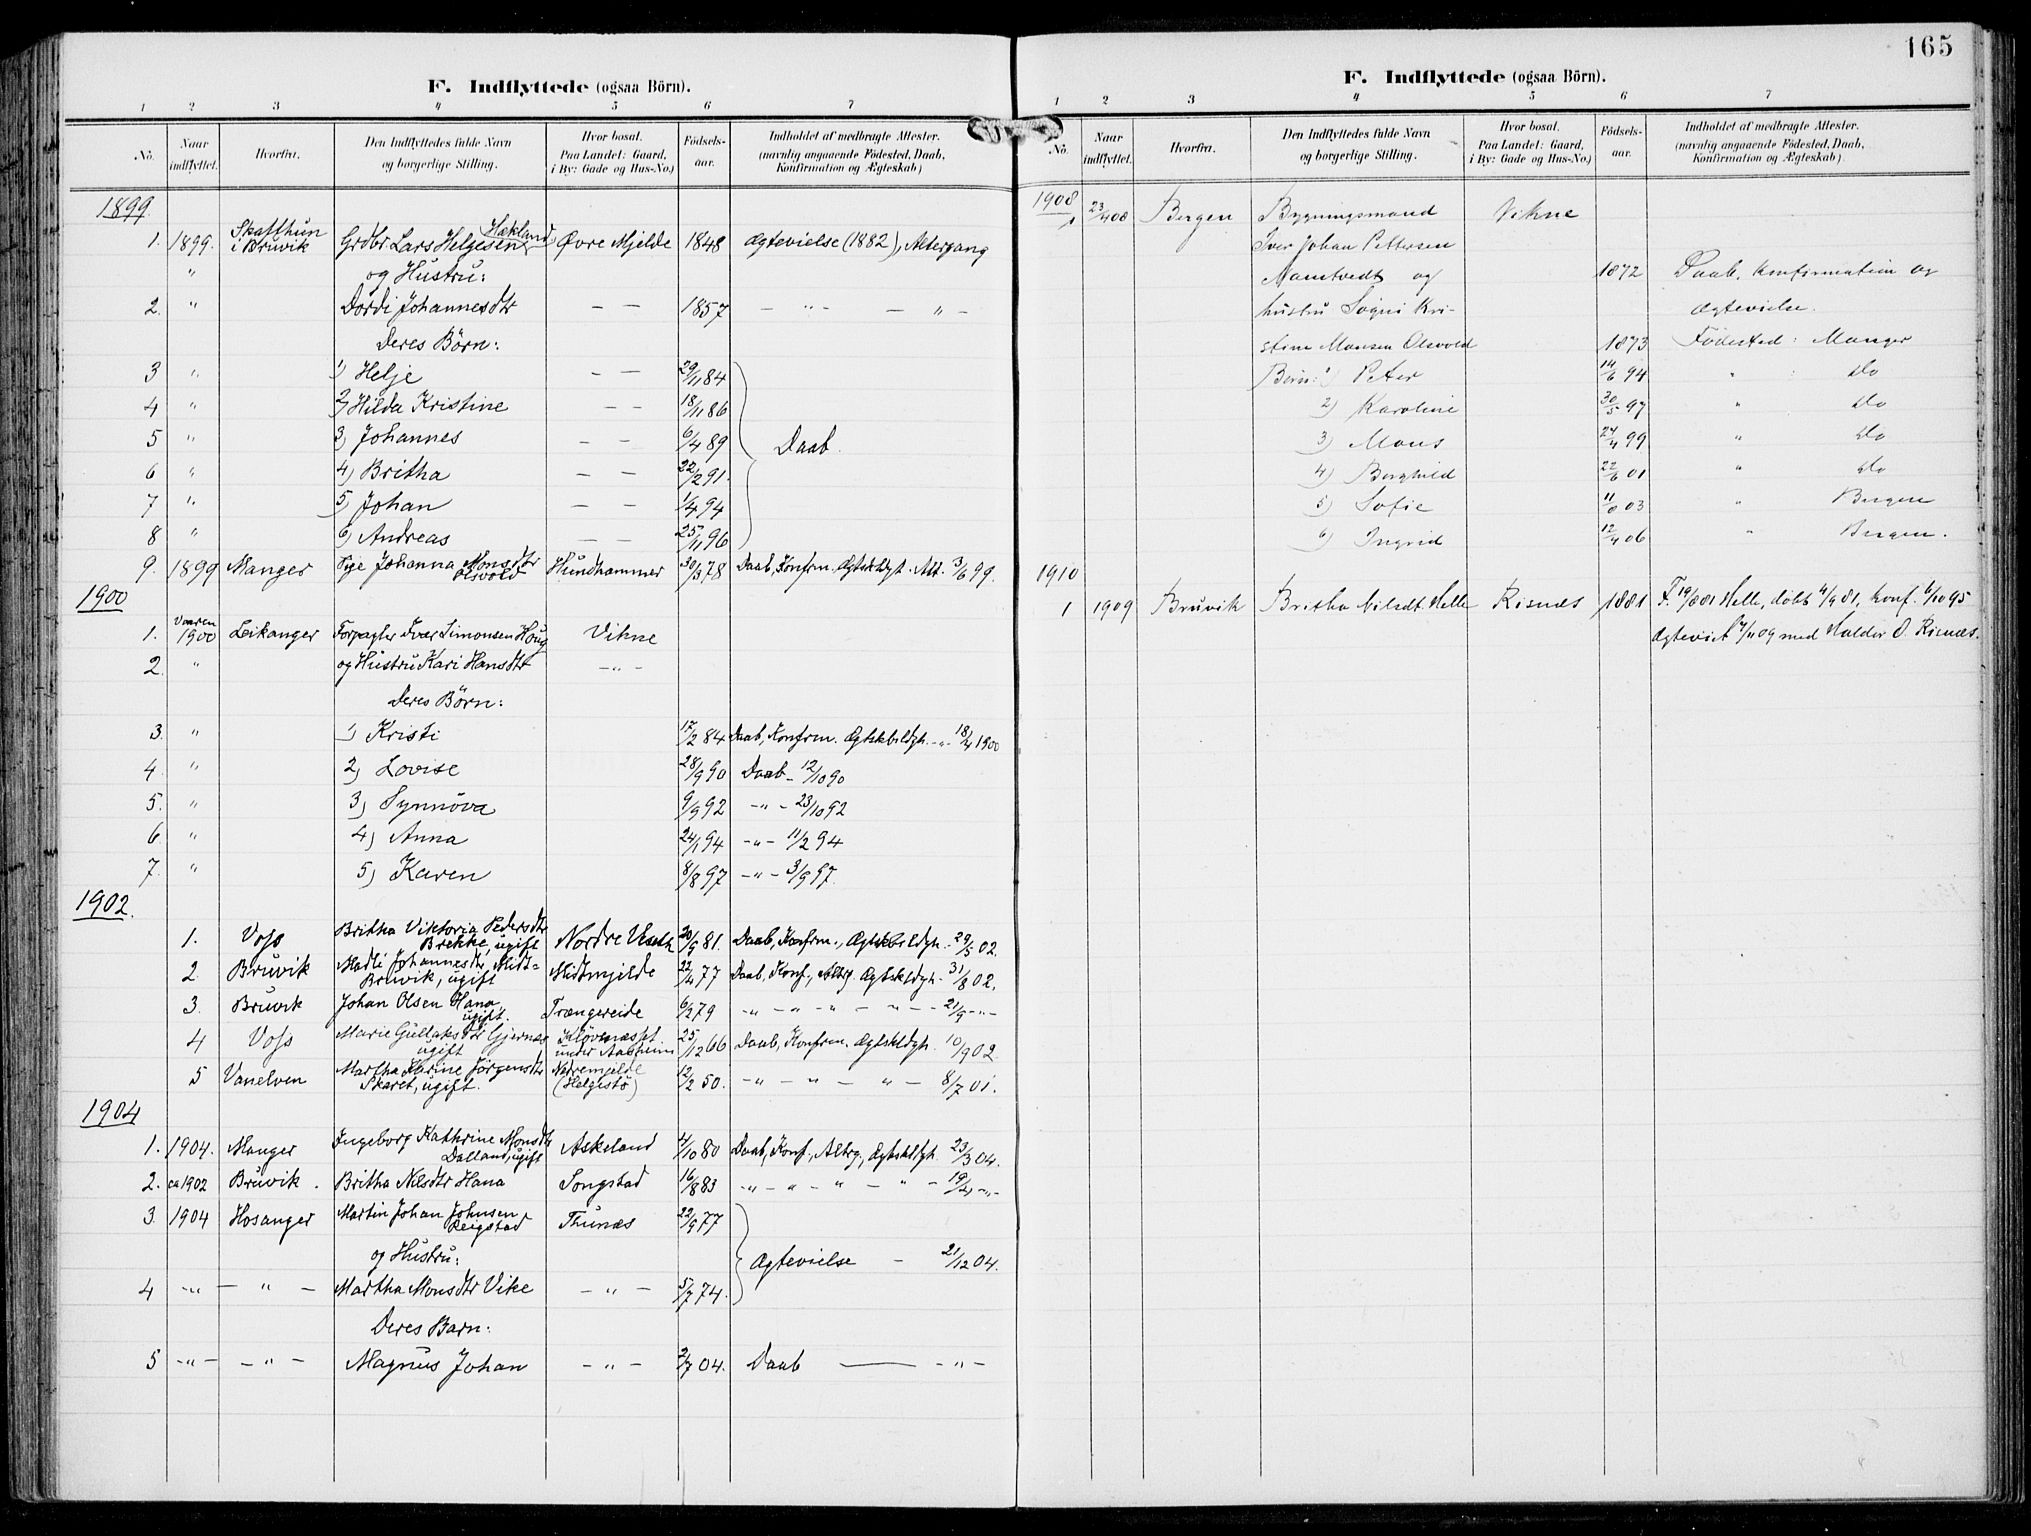 F. Indflyttede (ogsaa Börn).
1 2 3 4 5 6 7
No. Naar indflyttet. Hvorfra. Den Indflyttedes fulde Navn og borgerlige Stilling. Hvor bosat. Paa Landet: Gaard, i By: Gade og Hus-No.) Födsels-aar. Indholdet af medbragte Attester. (navnlig angaaende Födested, Daab, Konfirmation og Ægteskab)
1899.
1. 1899. Skafthun i Bruvik Grdbr. Lars Helgesen Hækland Øvre Mjelde 1848 Ægtevielse (1882), Altergang
og Hustru:
2. " Dordi Johannesdtr — — 1857 — " — — " —
Deres Børn:
3 " 1) Helje — — 29/11 84
4 " 2) Hilda Kristine — — 18/11 86
5 " 3) Johannes — — 6/4 89 Daab.
6 " 4) Britha — — 22/2 91.
7 " 5) Johan — — 1/4 94
8 " 6) Andreas — — 25/11 96
9. 1899 Manger Pige Johanna Monsdtr Olsvold Hundhammer 30/3 78 Daab, Konfrm. Ægtskldgt. Att. 3/6 99.
1900
1. Vaaren 1900 Leikanger Forpagter Ivar Simonsen Houg Vikne
2. " og Hustru Kari Hansdtr — " —
Deres Børn:
3. " 1) Kristi 17/2 84 Daab, Konfrm. Ægtskbldgh. — " — 18/4 1900
4. " 2) Lovise 28/9 90 Daab — 12/10 90
5. " 3) Synnöva 9/9 92 — " — 23/10 92
6 " 4) Anna 24/1 94 — " — 11/2 94
7. " 5) Karen 8/8 97 — " — 3/9 97.
1902.
1. Voss Britha Viktoria Pedersdtr Brekke, ugift Nordre 20/9 81. Daab, Konfrm., Ægtskbldgh. 29/5 02.
2. Bruvik Madli Johannesdtr Midt-Bruvik, ugift Midtmjelde 22/4 77 Daab, Konf., Altrg. Ægtskldgh. 31/8 02.
3. Bruvik Johan Olsen Hana, ugift. Trængereide 6/2 79 — " — " — " — " — 21/9 — " —
4 Voss Marie Gullaksdtr Gjernes ugift Kløvenæsset under Aasheim 25/12 66 Daab, Konfrm. Ægtskldgh. 10/9 02.
5 Vanelven Martha Karine Jørgensdtr Skaret, ugift. Nedremjelde (Helgestø) 12/2 50. — " — " — " — 8/7 01.
1904
1. 1904. Manger Ingeborg Kathrine Monsdtr Dalland, ugift Askeland 4/10 80 Daab, Konf., Altrg., Ægtskldgh. 23/3 04.
2. ca 1902 Bruvik. Britha Nilsdtr Hana Songstad 16/8 83 — " — " — " — " — 19/4 — " —
3. 1904 Hosanger Martin Johan Johnsen Reigstad Thunæs 22/9 77
og Hustru: Ægtevielse — 21/12 04.
4 — " — — " — Martha Monsdtr Vike — " — 5/7 74.
Deres Barn:
5 — " — — " — Magnus Johan — " — 2/7 04. Daab — — " —
165
F. Indflyttede (ogsaa Börn).
1 2 3 4 5 6 7
No. Naar indflyttet. Hvorfra. Den Indflyttedes fulde Navn og borgerlige Stilling. Hvor bosat. Paa Landet: Gaard, i By: Gade og Hus-No.) Födsels-aar. Indholdet af medbragte Attester. (navnlig angaaende Födested, Daab, Konfirmation og Ægteskab)
1908
1 23/4 08 Bergen Bygningsmand Vikne
Iver Johan Pettersen
Namtvedt og 1872 Daab, Konfirmation og
hustru Sogni Kri- Ægtevielse.
stine Monsen Olsvold 1873 Fødested: Manger
Børn: 1) Peter 14/6 94 " : Do
2) Karoline 30/5 97 " Do
3) Mons 24/4 99 " Do
4) Borghild 22/6 01 " Do
5) Sofie 11/8 03 " Bergen
6) Ingrid 12/4 06 " Bergen.
1910
1 1909 Bruvik Britha Nilsdt. Helle Risnæs 1881 F. 19/8 81 Helle, døbt 4/9 81, Konf. 6/10 95
Ægteviet 7/11 09 med Haldor O. Risnæs.